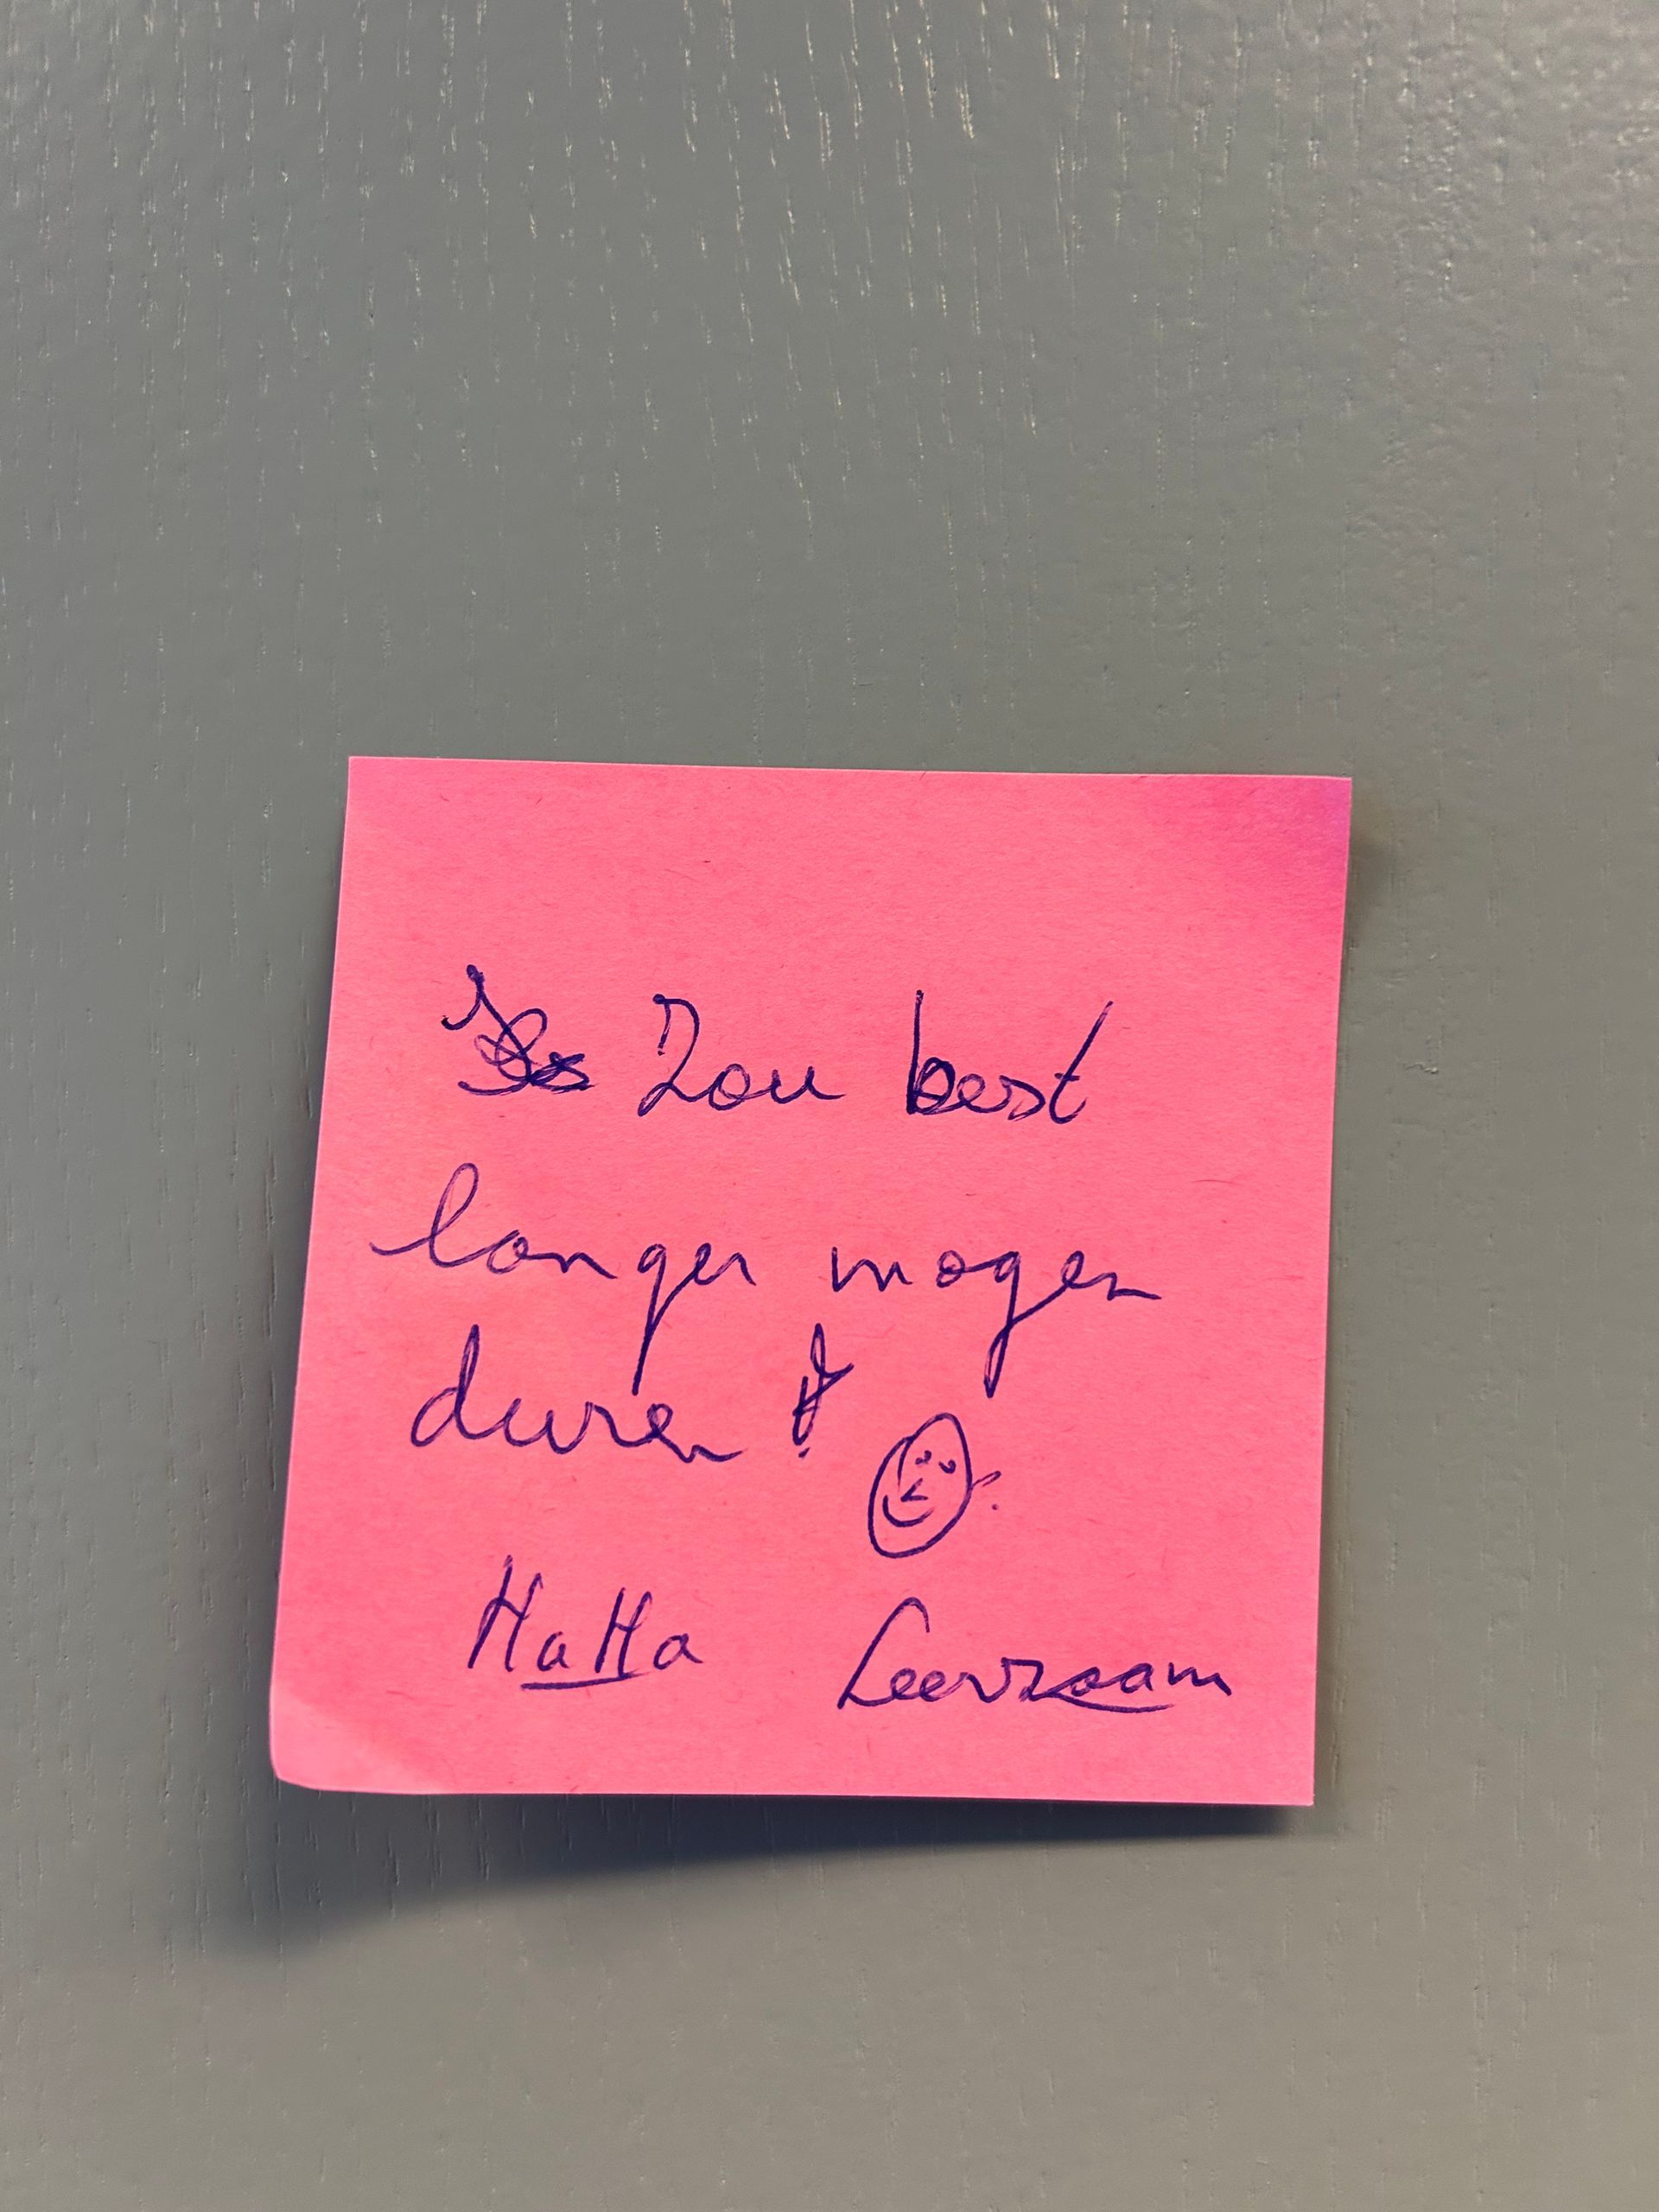 Zou best
langer mogen
duren!
HaHa Leerzaam